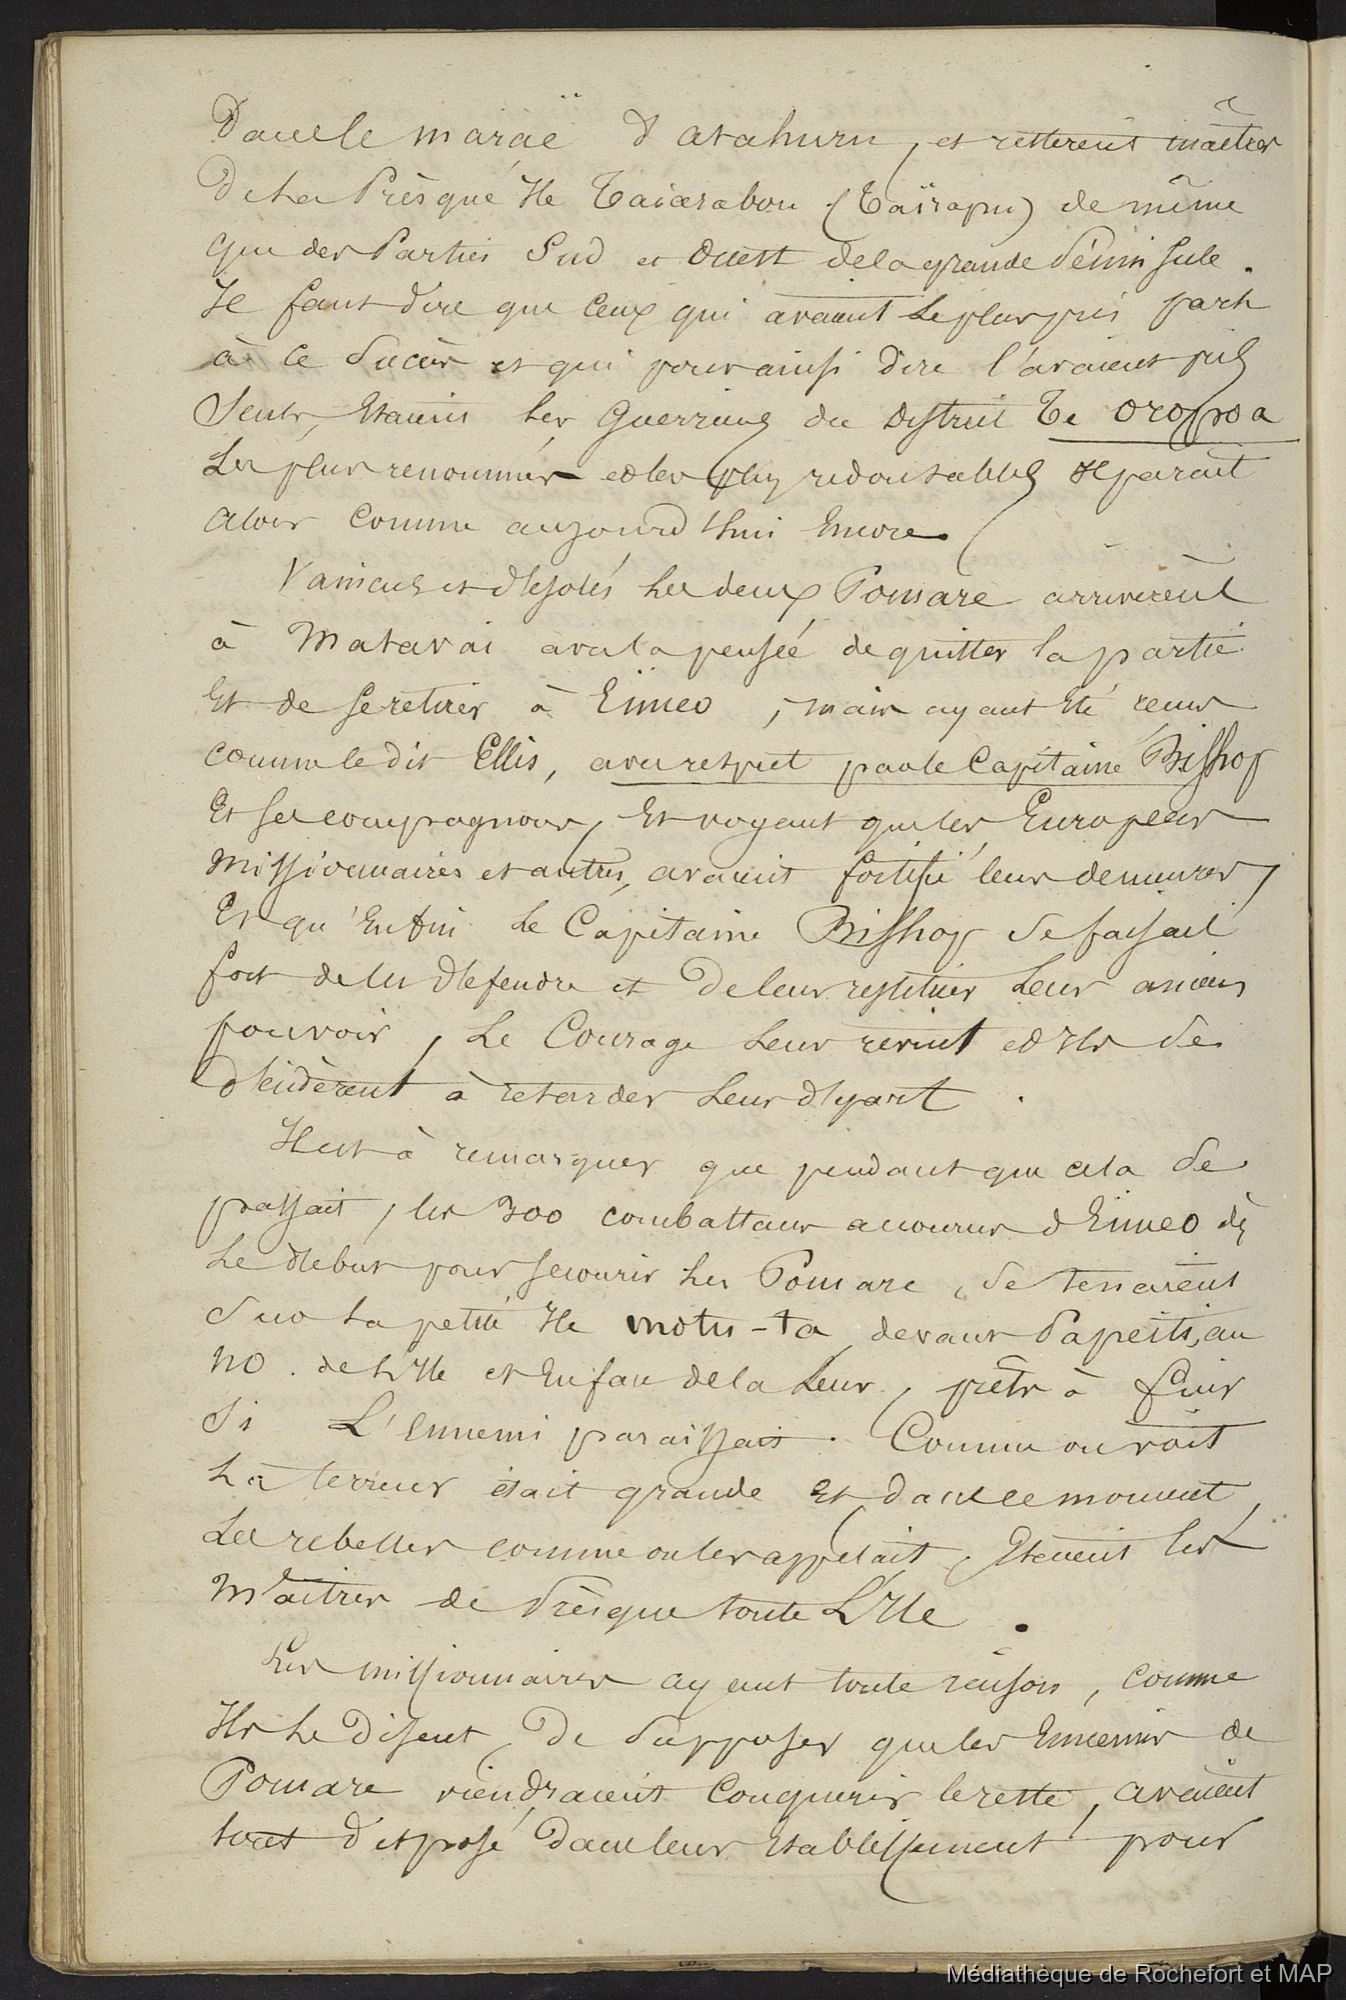 Dans le maraë d'atahuru, et restèrent maîtres
De La Présqué Ile Taïarabou (Taïrapu) de même
que des Parties Sud et ouest de la grande Péninsule.
Il faut dire que Ceux qui avaient Le plus pris part
à Ce Succès et qui pour ainsi Dire l'avaient pris
Seuls, Etaient Les Guerriers du District Te oropoa
Les plus renommés et les plus redoutables Il parait
alors Comme aujourd'hui Encore.
Vaincus et désolés Les deux Pomare arrivèrent
à Matavai avec la pensée de quitter la partie
Et de se retirer à Eïmeo, mais ayant Eté reçus
comme le dit Ellis, avec respect par le Capitaine Bishop
Et Ses compagnons, Et voyant que les Européens
Missionnaires et autres, avaient fortifié leurs demeures,
Et qu'Enfin Le Capitaine Bishop Se faisait
fort de les défendre et De leur restituer Leur ancien
pouvoir, Le Courage Leur revint et Ils Se
décidèrent à retarder Leur départ.
Il est à remarquer que pendant que cela Se
passait, les 300 combattans accourus d'Eïmeo dès
Le début pour secourir Les Pomare, Se tenaient
Sur La petite Ile motu-ta, devant Papeiti, au
NO. de L'Ile et En face de la Leur, prêts à fuir
Si L'Ennemi paraissait. Comme on voit
La terreur était grande Et dans ce moment,
Les rebelles comme on les appelait, Etaient Les
Maîtres de Présque toute L'Ile.
Les missionnaires ayant toute raison, comme
Ils Le Disent, De Supposer que les Ennemis de
Pomare viendraient Conquérir le reste, avaient
tout disposé Dans leur Etablissement pour
Médiathèque de Rochefort et MAP